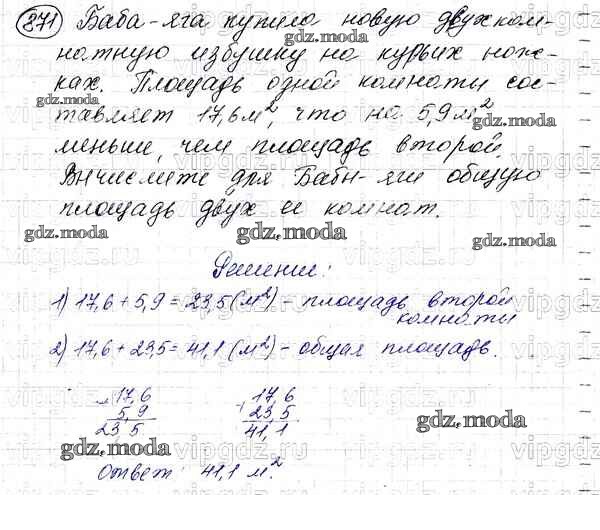 871 Баба-яга купила новую двухком-
натную избушку на курьих нож-
ках. Площадь одной комнаты сос-
тавляет 17,6 м², что на 5,9 м²
меньше, чем площадь второй.
Вычислите для Бабы-яги общую
площадь двух её комнат.
Решение:
1) 17,6 + 5,9 = 23,5 (м²) - площадь второй
комнаты
2) 17,6 + 23,5 = 41,1 (м²) - общая площадь.
17,6 17,6
+ 5,9 + 23,5
23,5 41,1
Ответ: 41,1 м².
gdz.moda
vipgdz